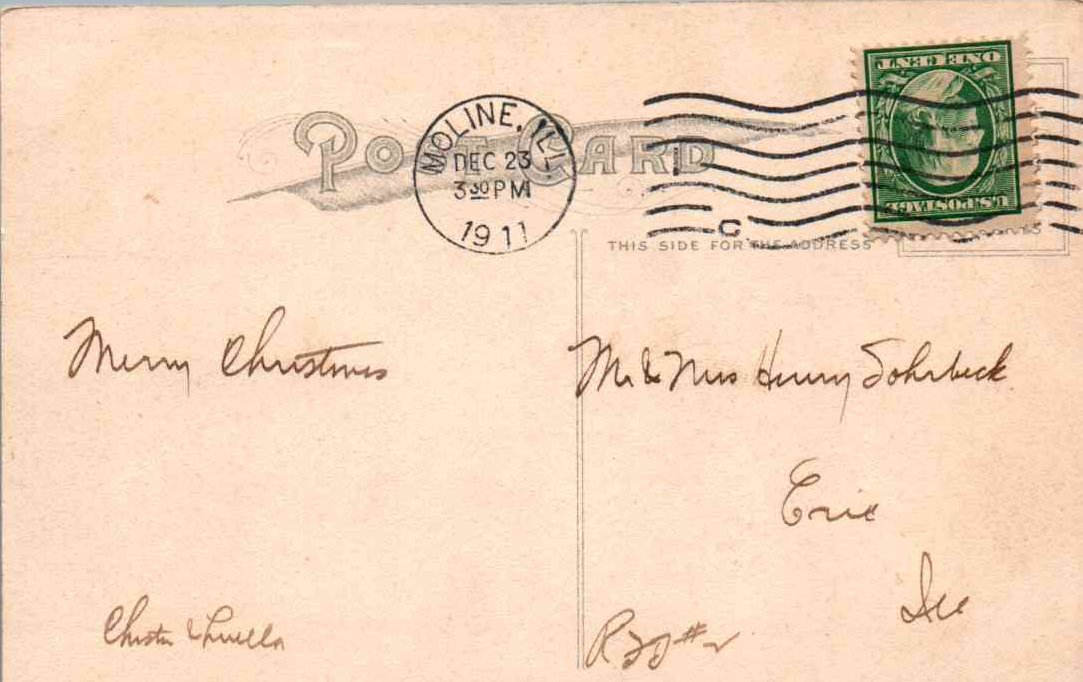 POST CARD
MOLINE, ILL.
DEC 23
3 30 PM
1911
ONE CENT
U.S. POSTAGE
C
THIS SIDE FOR THE ADDRESS
Merry Christmas
Mr & Mrs Henry Sohrbeck
Erie
Ill
& Luella
R #2